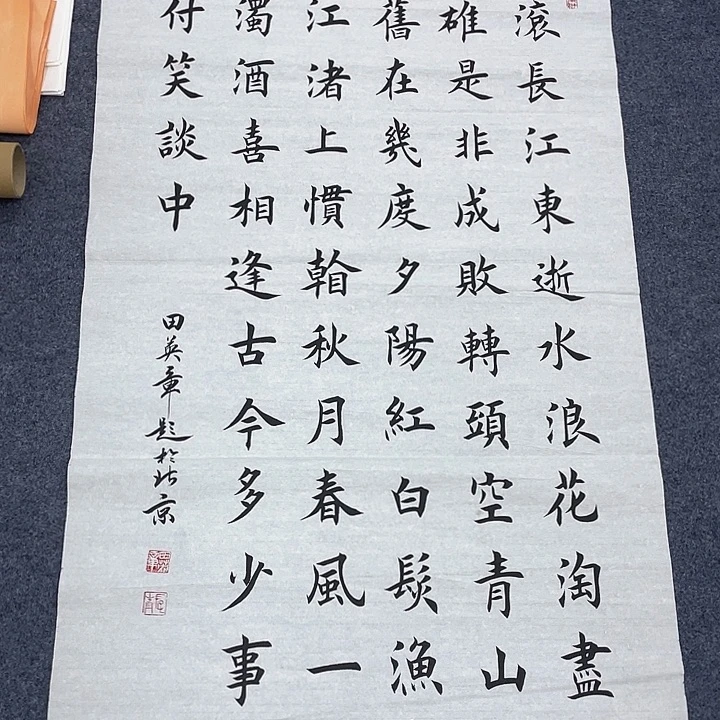 滾長江東逝水浪花淘盡
雄是非成敗轉頭空青山
舊在幾度夕陽紅白髮漁
江渚上慣看秋月春風一
濁酒喜相逢古今多少事
付笑談中
田英章題於北京